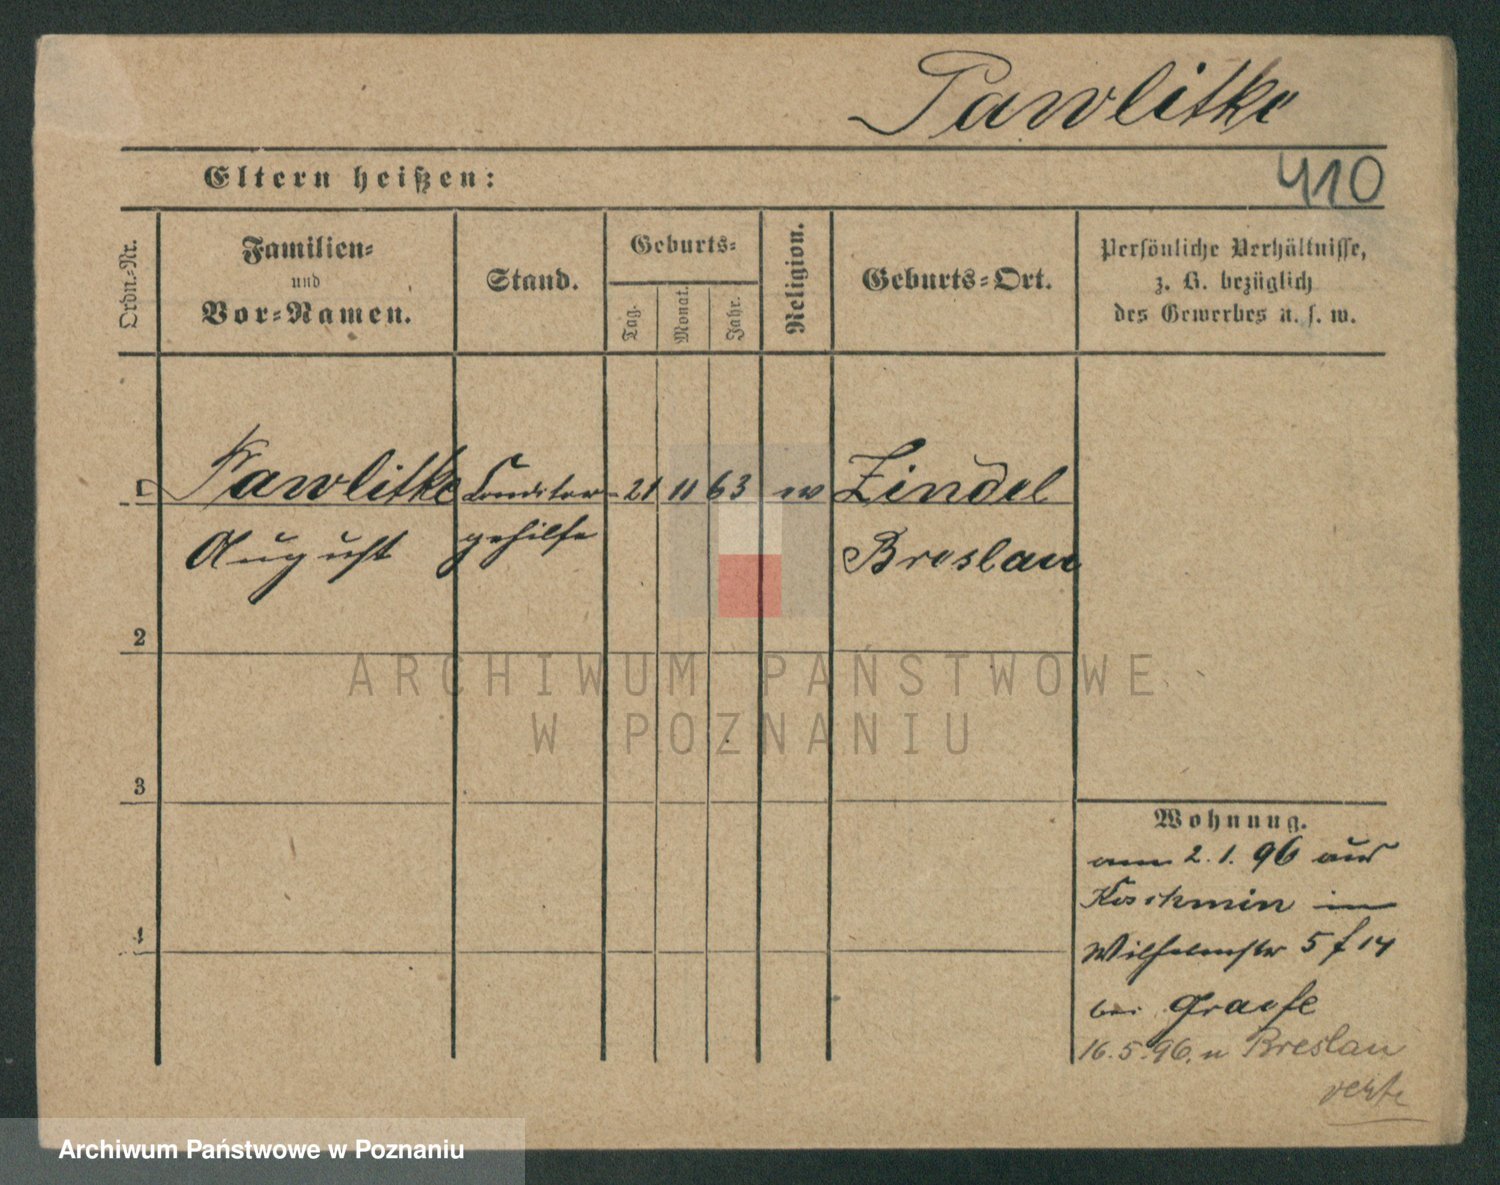 Pawlitke
Eltern heißen:
410
Ordn.-Nr.
Familien-
und
Vor-Namen.
Stand.
Geburts-
Tag.
Monat.
Jahr.
Religion.
Geburts-Ort.
Persönliche Verhältnisse,
z. B. bezüglich
des Gewerbes u. s. w.
1 Pawlitke Conditor- 21 11 63 ev Zindel
August gehilfe Breslau
2
3
4
Wohnung.
am 2.1.96 aus
Koschmin in
Wilhelmstr 5 f 14
bei Graefe
16.5.96. n Breslau
verte
ARCHIWUM PAŃSTWOWE
W POZNANIU
Archiwum Państwowe w Poznaniu